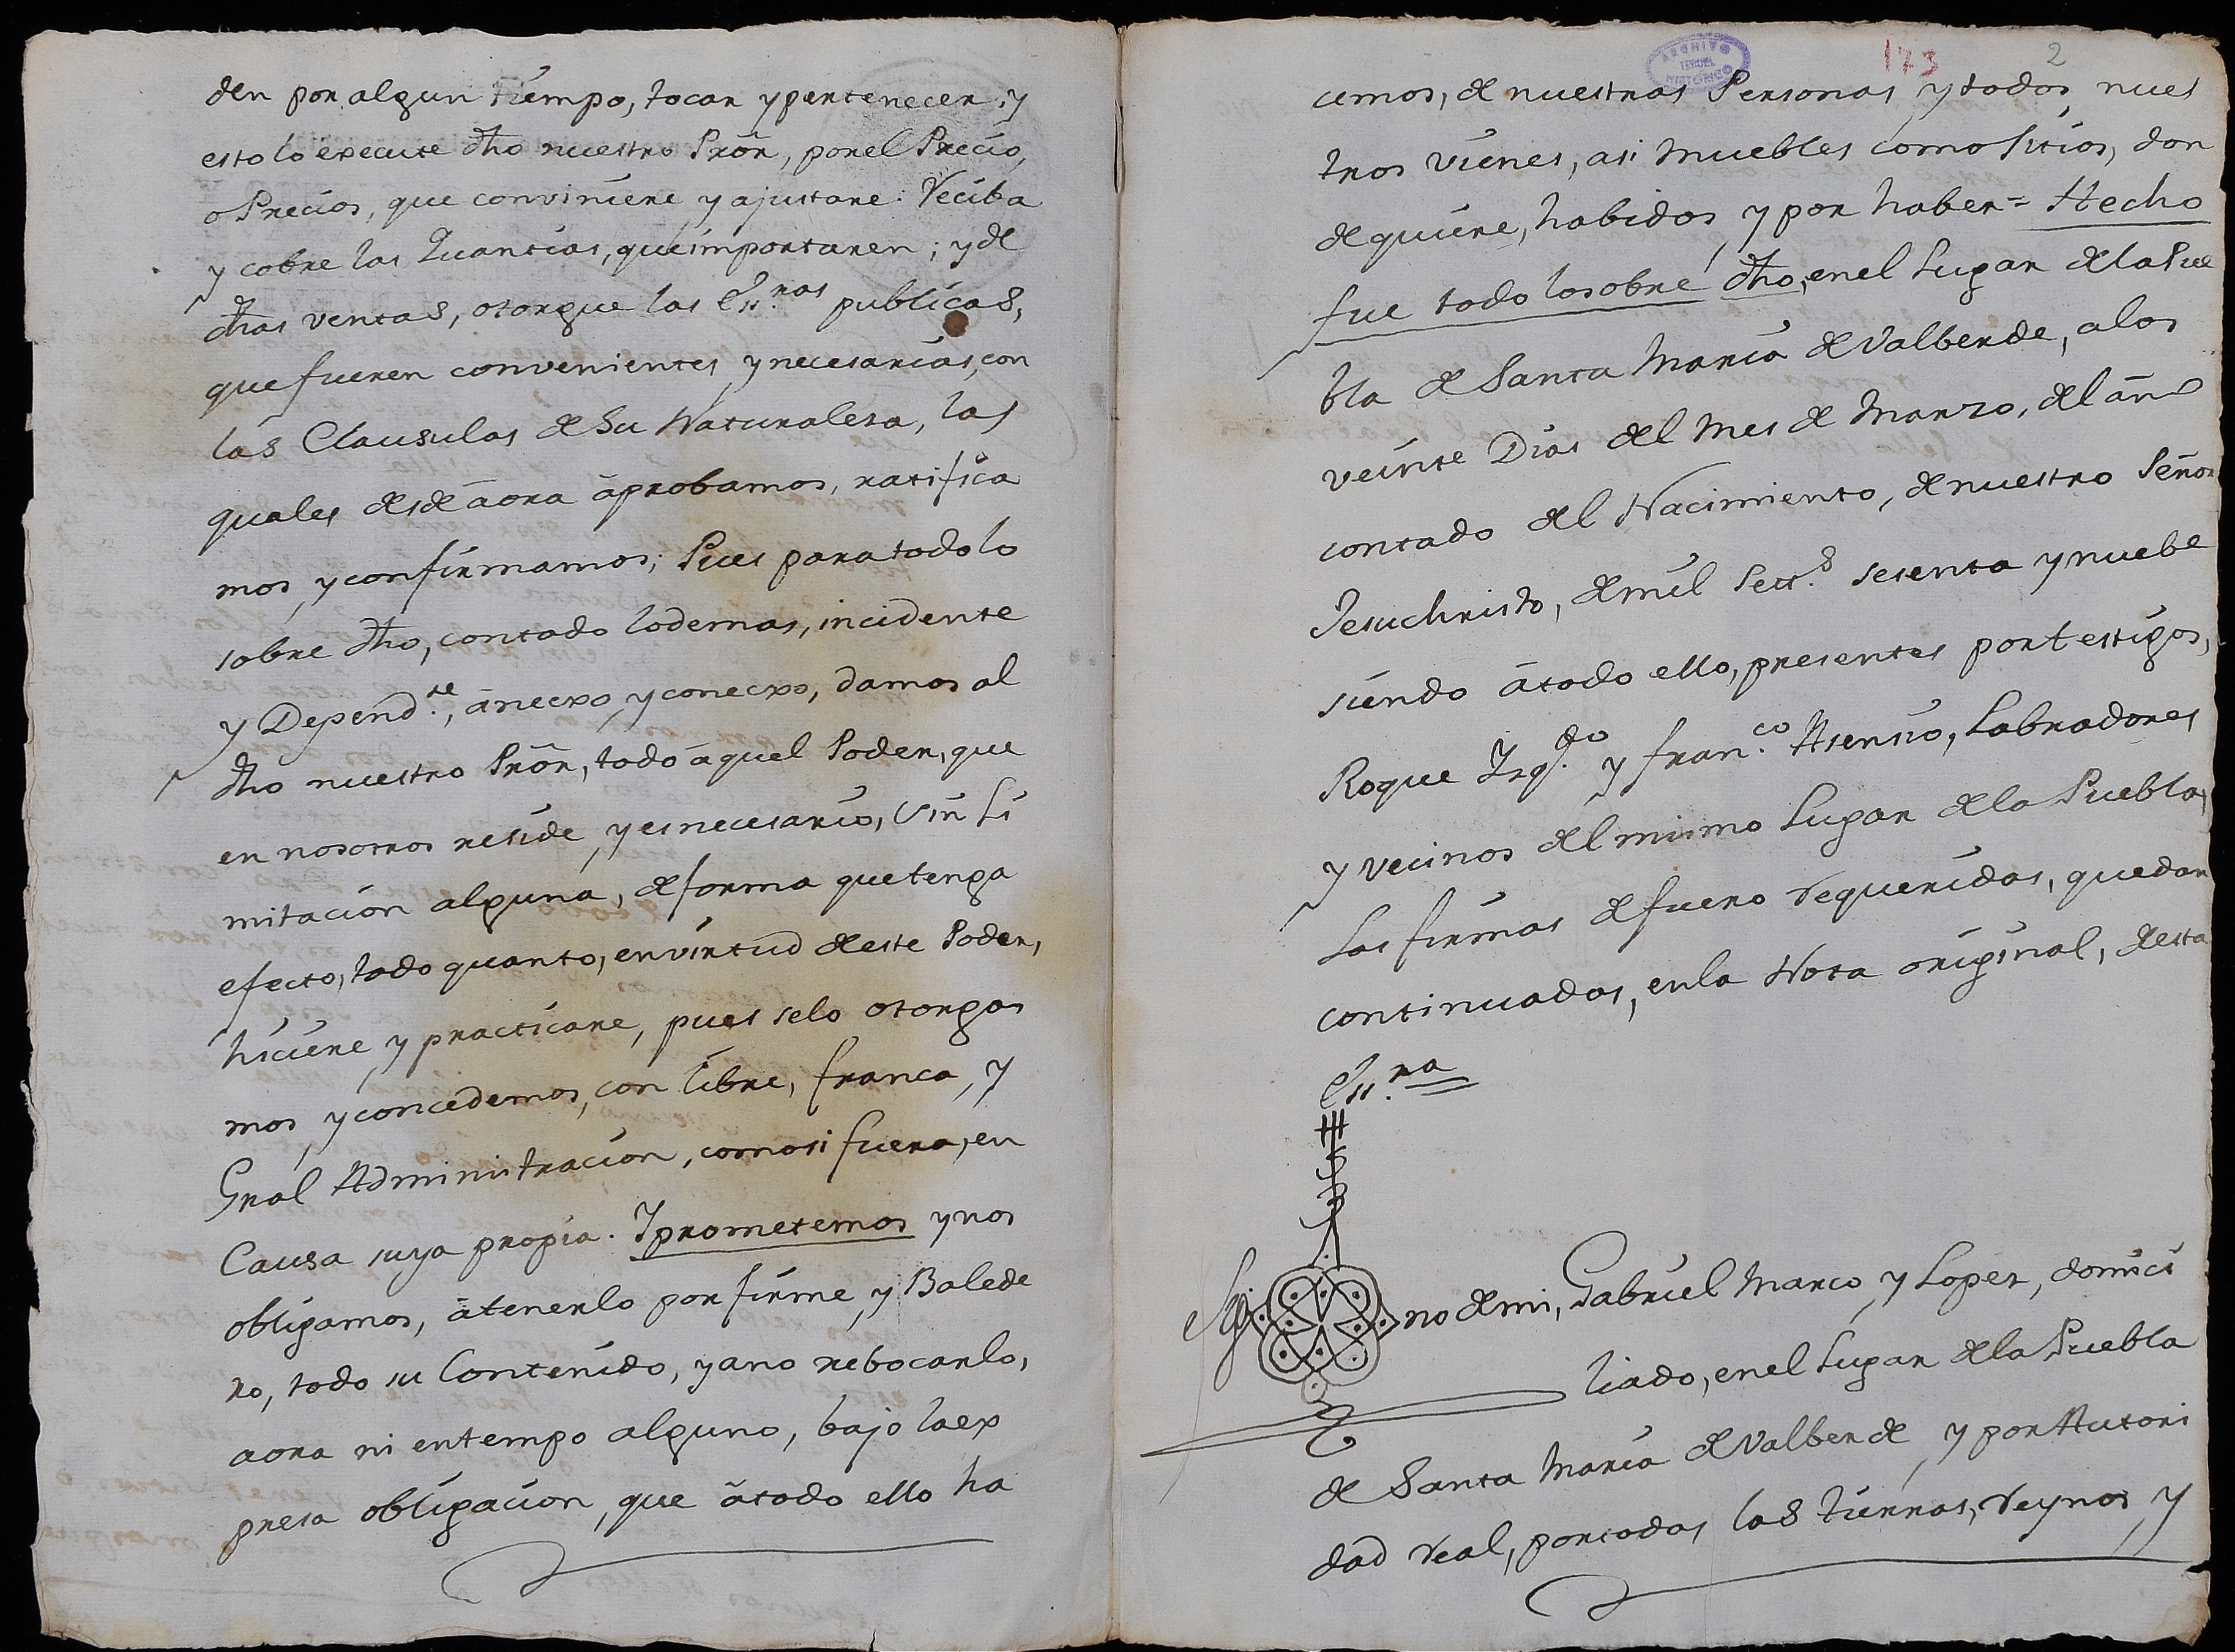 den por algun tiempo, tocar y pertenecer; y
esto lo execute dho nuestro Prõr, por el Precio,
o Precios, que conviniere y ajustare: reciba
y cobre las Quantias, que importaren; y de
dhas ventas, otorgue las Ess.ras publicas,
que fueren convenientes y necesarias, con
las Clausulas de su Naturalesa, las
quales desde aora aprobamos, ratifica
mos, y confirmamos; Pues para todo lo
sobre dho, contado lodemas, incidente
y Depend.te, anecxo, y conecxo, damos al
dho nuestro Prõr, todo aquel Poder, que
en nosotros reside, y es necesario, sin li
mitacion alguna, de forma que tenga
efecto, todo quanto, en virtud de este Poder,
hiciere, y practicare, pues selo otorga
mos, y concedemos, con libre, franca, y
Gral Administracion, como si fuera, en
Causa suya propia. Y prometemos y nos
obligamos, a tenerlo por firme, y Balede
ro, todo su Contenido, y a no rebocarlo,
aora ni en tempo alguno, bajo la ex
presa obligacion, que a todo ello ha
ARCHIVO
HISTORICO
TERUEL
173
2
cemos, de nuestras Personas, y todos nues
tros vienes, asi muebles como sitios, don
de quiere, habidos, y por haber = Hecho
fue todo lo sobre dho, en el Lugar de la Pue
bla de Santa Maria de Valberde, a los
veinte Dias del Mes de Marzo, del año
contado del Nacimiento, de nuestro Señor
Jesuchristo, de mil Sett.s sesenta y nuebe
siendo a todo ello, presentes por testigos,
Roque Izq.do y Fran.co Asensio, Labradores
y vecinos del mismo Lugar de la Puebla,
Las firmas de fuero requeridas, quedan
continuadas, en la Nota original, desta
Ess.ra
Sig no de mi, Gabriel Marco y Lopez, domici
liado, en el Lugar de la Puebla
de Santa Maria de Valberde, y por Autori
dad real, por todas las tierras, reynos, y